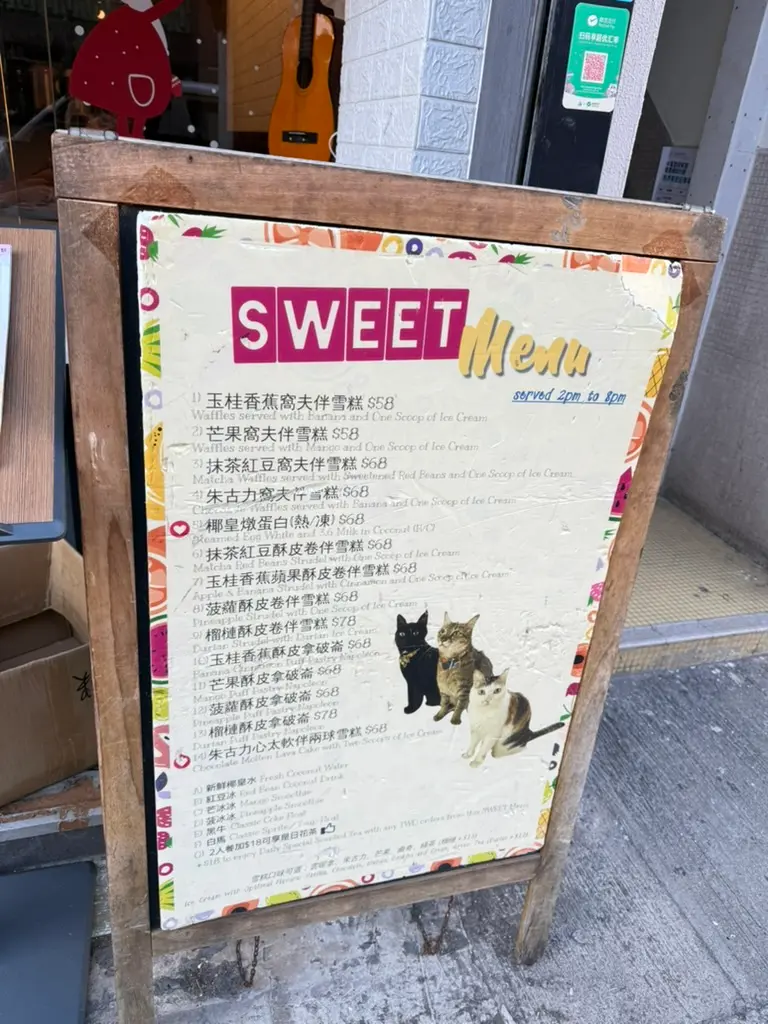 SWEET Menu
served 2pm to 8pm
1) 玉桂香蕉窩夫伴雪糕 $58
Waffles served with Banana and One Scoop of Ice Cream
2) 芒果窩夫伴雪糕 $58
Waffles served with Mango and One Scoop of Ice Cream
3) 抹茶紅豆窩夫伴雪糕 $68
Matcha Waffles served with Sweetened Red Beans and One Scoop of Ice Cream
4) 朱古力窩夫伴雪糕 $68
Chocolate Waffles served with Banana and One Scoop of Ice Cream
5) 椰皇燉蛋白(熱/凍) $68
Steamed Egg White and 3.6 Milk in Coconut (H/C)
6) 抹茶紅豆酥皮卷伴雪糕 $68
Matcha Red Beans Strudel with One Scoop of Ice Cream
7) 玉桂香蕉蘋果酥皮卷伴雪糕 $68
Apple & Banana Strudel with Cinnamon and One Scoop of Ice Cream
8) 菠蘿酥皮卷伴雪糕 $68
Pineapple Strudel with One Scoop of Ice Cream
9) 榴槤酥皮卷伴雪糕 $78
Durian Strudel with Durian Ice Cream
10) 玉桂香蕉酥皮拿破崙 $68
Banana Cinnamon Puff Pastry Napoleon
11) 芒果酥皮拿破崙 $68
Mango Puff Pastry Napoleon
12) 菠蘿酥皮拿破崙 $68
Pineapple Puff Pastry Napoleon
13) 榴槤酥皮拿破崙 $78
Durian Puff Pastry Napoleon
14) 朱古力心太軟伴兩球雪糕 $68
Chocolate Molten Lava Cake with Two Scoops of Ice Cream
A) 新鮮椰皇水 Fresh Coconut Water
B) 紅豆冰 Red Bean Coconut Drink
C) 芒冰冰 Mango Smoothie
D) 菠冰冰 Pineapple Smoothie
E) 黑牛 Classic Coke Float
F) 白馬 Classic Sprite/ Float
G) 2人餐加$18可享是日花茶
+$18 to enjoy Daily Special Scented Tea with any TWO orders from this SWEET Menu
雪糕口味可選:
Ice Cream with Optional Flavors: